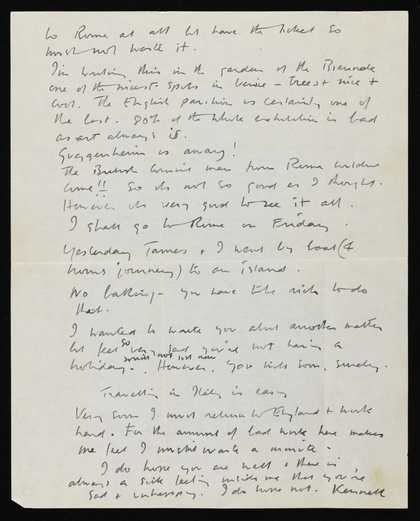 to Rome at all but have the ticket so
must not waste it.
I'm writing this in the garden of the Biennale
one of the nicest spots in Venice – trees + nice +
cool. The English pavilion is certainly one of
the best. 80% of the whole exhibition is bad
as art always is.
Guggenheim is away!
The British Council man from Rome
come!! So it's not so good as I thought.
However it's very good to see it all.
I shall go to Rome on Friday.
Yesterday James + I went by boat (4
hours journey) to an island.
No bathing – you have to be rich to do
that.
I wanted to write you about another matter
but feel so very sad you're not having a
holiday. However, you will soon, surely.
Travelling in Italy is easy
Very soon I must return to England + work
hard. For the amount of bad work here makes
me feel I mustn't waste a minute.
I do hope you are well + there is
always a sick feeling inside me that you're
sad + unhappy. I do hope not. Kenneth